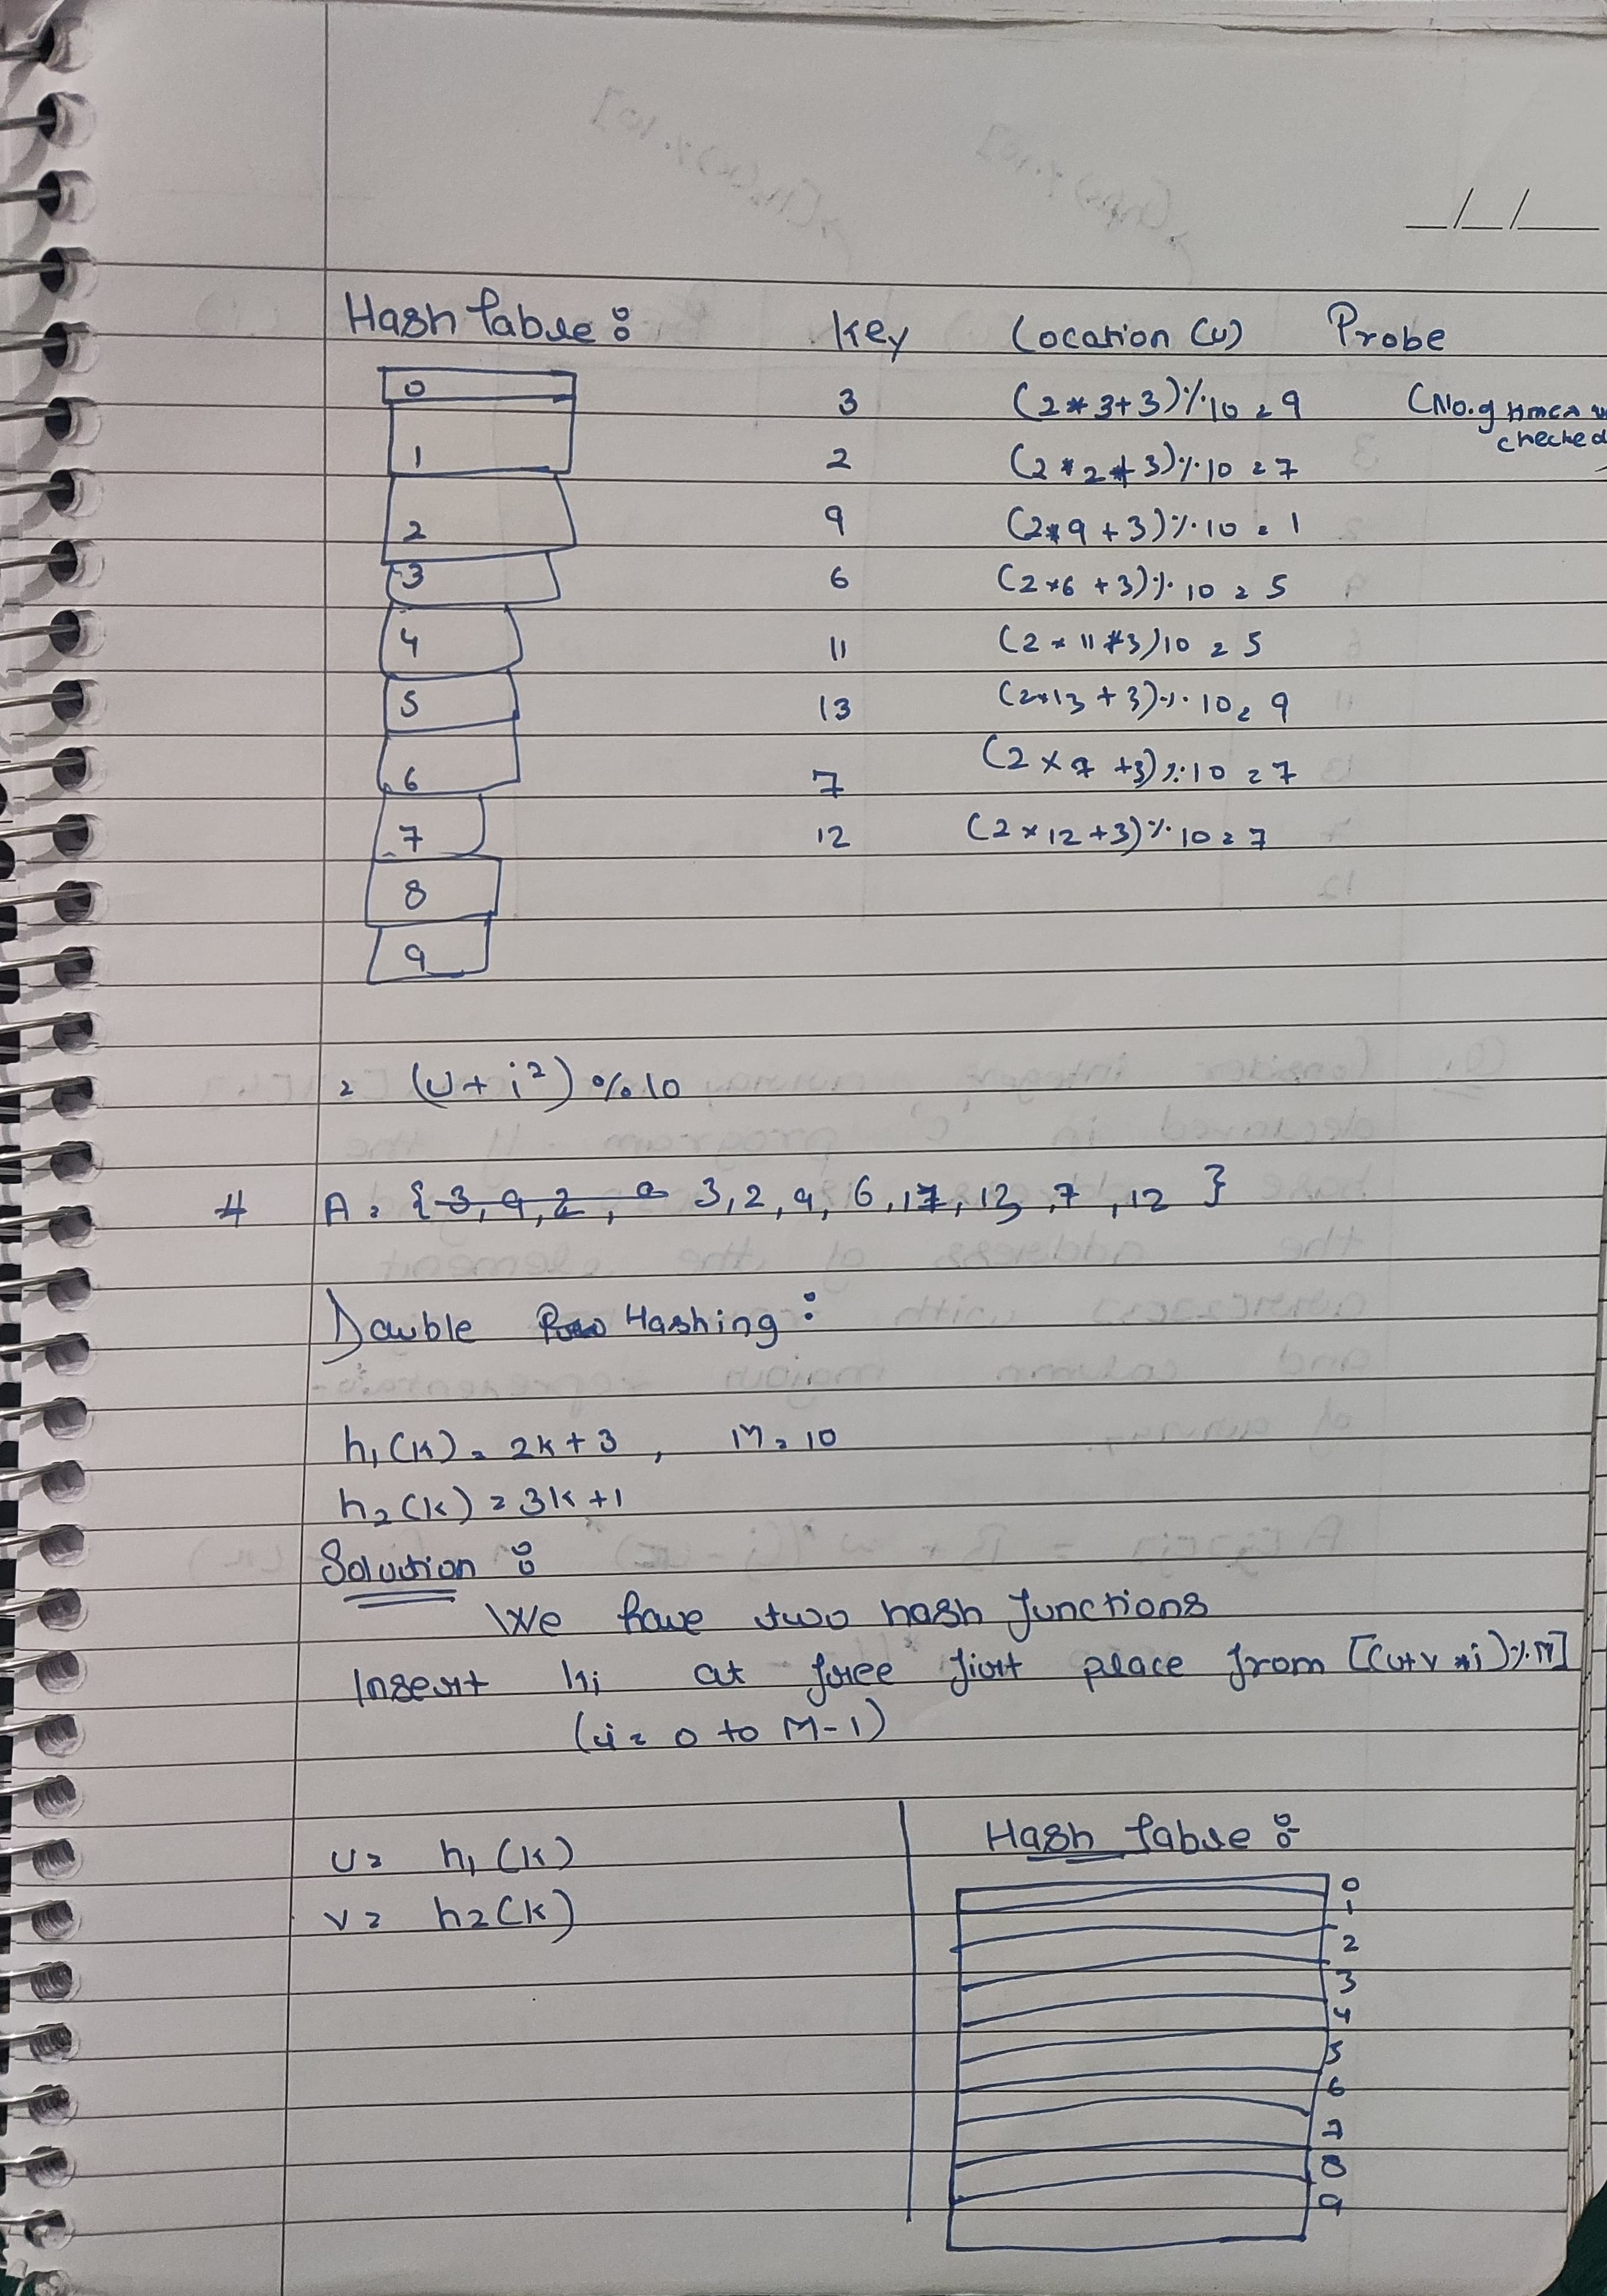 _/_/__
Hash Table : Key Location (u) Probe
0 3 (2*3+3)%10 = 9 (No. of times
checked
1 2 (2*2+3)%10 = 7
2 9 (2*9+3)%10 = 1
3 6 (2*6+3)%10 = 5
4 11 (2*11+3)10 = 5
5 13 (2*13+3)%10 = 9
6 7 (2×7+3)%10 = 7
7 12 (2×12+3)%10 = 7
8
9
= (U+i²)%10
# A = {3, 9, 2, 3, 2, 9, 6, 11, 13, 7, 12}
Double Hashing :
h₁(k) = 2k+3, M = 10
h₂(k) = 3k+1
Solution :
We have two hash functions
Insert ki at free first place from [(u+v*i)%M]
(i = 0 to M-1)
Hash Table :
U = h₁(k)
V = h2(k)
0
1
2
3
4
5
6
7
8
9